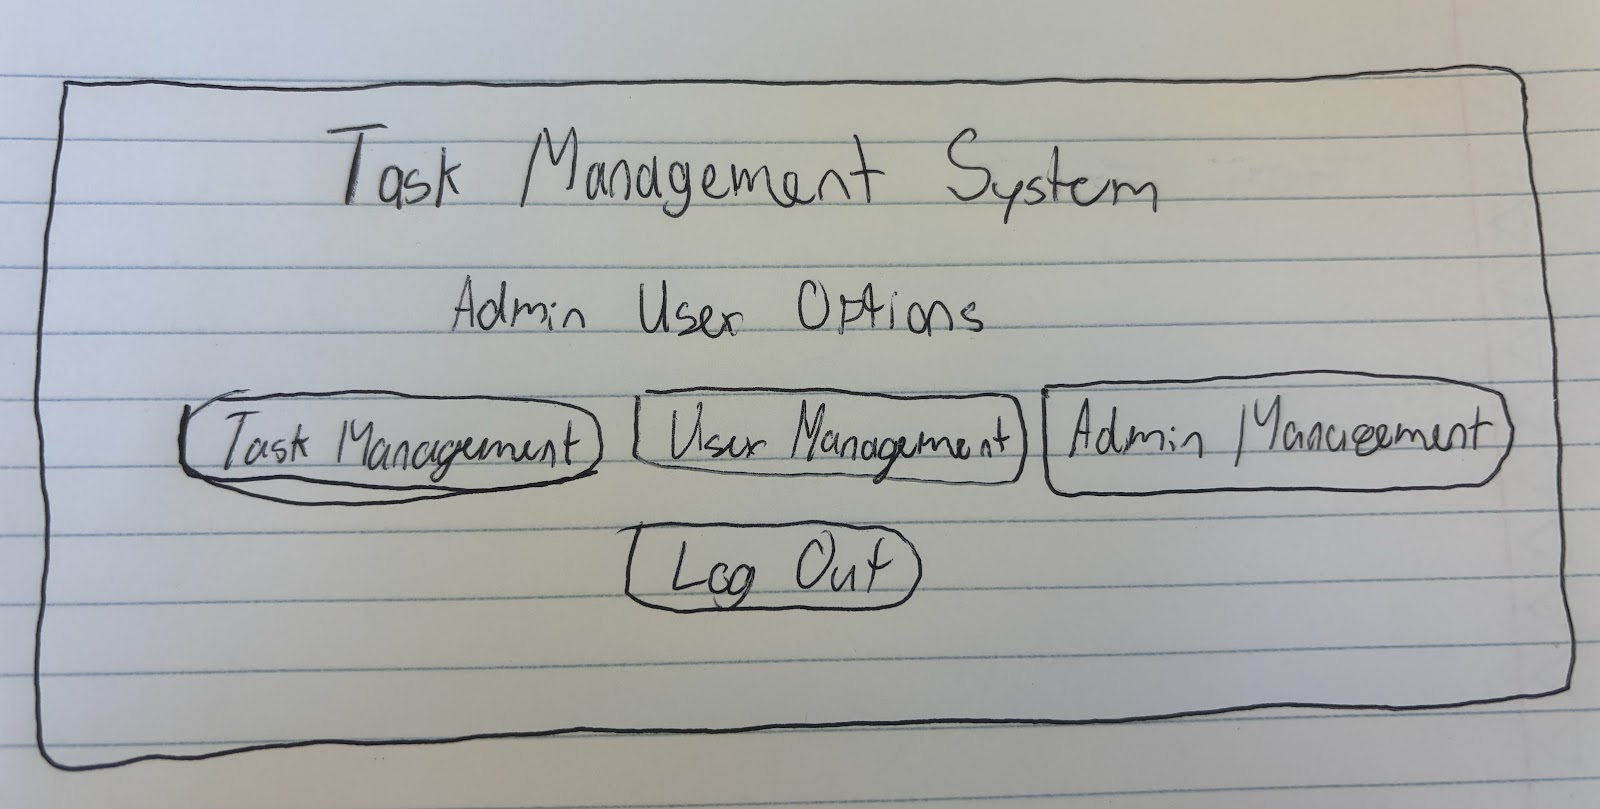 Task Management System
Admin User Options
Task Management
User Management
Admin Management
Log Out